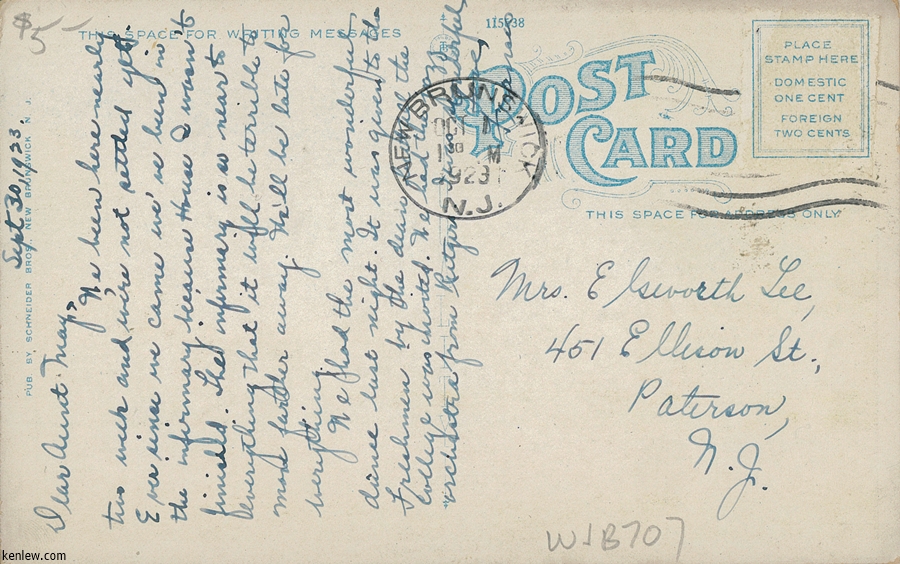 $5-
THIS SPACE FOR WRITING MESSAGES
115838
POST
CARD
PLACE
STAMP HERE
DOMESTIC
ONE CENT
FOREIGN
TWO CENTS
NEW BRUNSWICK
OCT 1
M
1923
N.J.
THIS SPACE FOR ADDRESS ONLY
PUB. BY SCHNEIDER BROS. NEW BRUNSWICK N. J.
Sept. 30, 1923.
Dear Aunt May,
We've been here nearly
two weeks and we're not settled yet.
Ever since we came we've been in
the infirmary because House I wasn't
finished. The infirmary is so near to
everything that it will be terrible to
move farther away. We'll be late for
everything.
We had the most wonderful
dance last night. It was given to the
Freshmen by the dean and all the
College was invited. We had the
orchestra from Rutgers
Mrs. Elsworth Lee,
451 Ellison St.,
Paterson,
N.J.
WJB707
kenlew.com